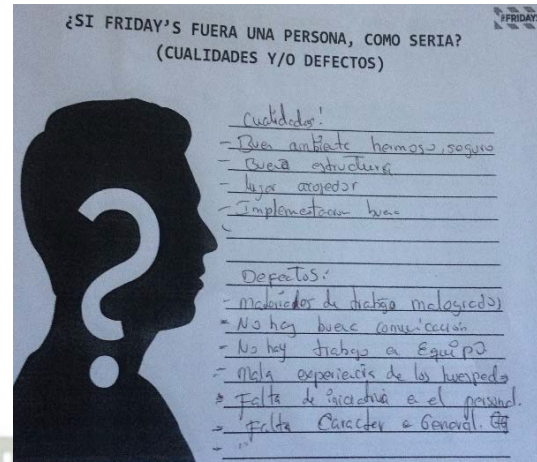 ¿SI FRIDAY'S FUERA UNA PERSONA, COMO SERIA?
(CUALIDADES Y/O DEFECTOS)
FRIDAY
Cualidades:
- Buen ambiente hermoso, seguro
- Buena estructura
- lugar acojedor
- Implementacion buena
Defectos:
- Materiales de trabajo malogrados
- No hay buena comunicación
- No hay trabajo en EquipO
- Mala experiencia de los huesped
- Falta de iniciativa e el personal.
- Falta Caracter e General.